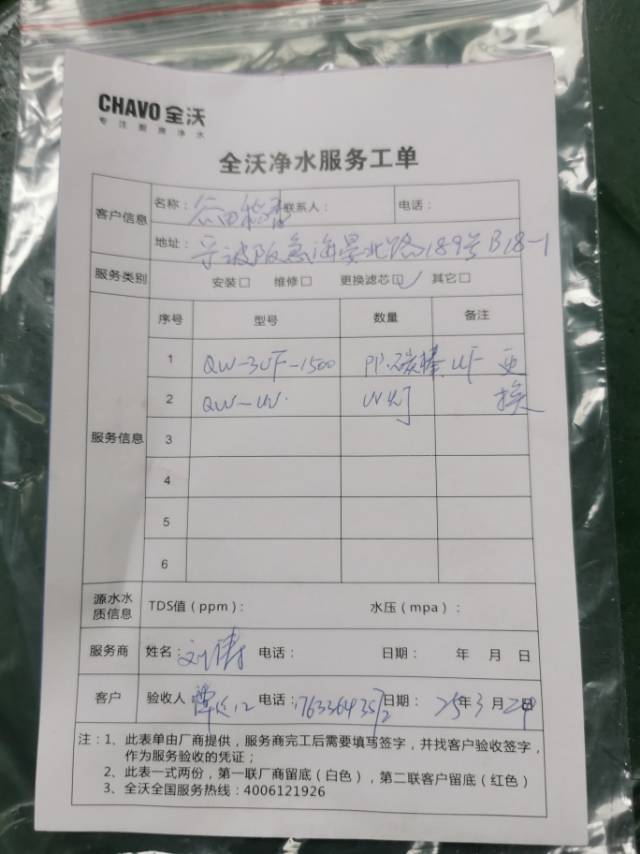 CHAVO 全沃
专注厨房净水
全沃净水服务工单
客户信息 名称：谷田稻香 联系人： 电话：
地址：宁波阪急海晏北路189号B18-1
服务类别 安装□ 维修□ 更换滤芯☑ 其它□
服务信息 序号 型号 数量 备注
1 QW-3UF-1500 PP.碳棒.UF 更
2 QW-UV. UV灯 换
3
4
5
6
源水水质信息 TDS值（ppm）： 水压（mpa）：
服务商 姓名：刘 电话： 日期： 年 月 日
客户 验收人 电话：17633643572 日期：25年3月29日
注：1、此表单由厂商提供，服务商完工后需要填写签字，并找客户验收签字，
作为服务验收的凭证；
2、此表一式两份，第一联厂商留底（白色），第二联客户留底（红色）
3、全沃全国服务热线：4006121926